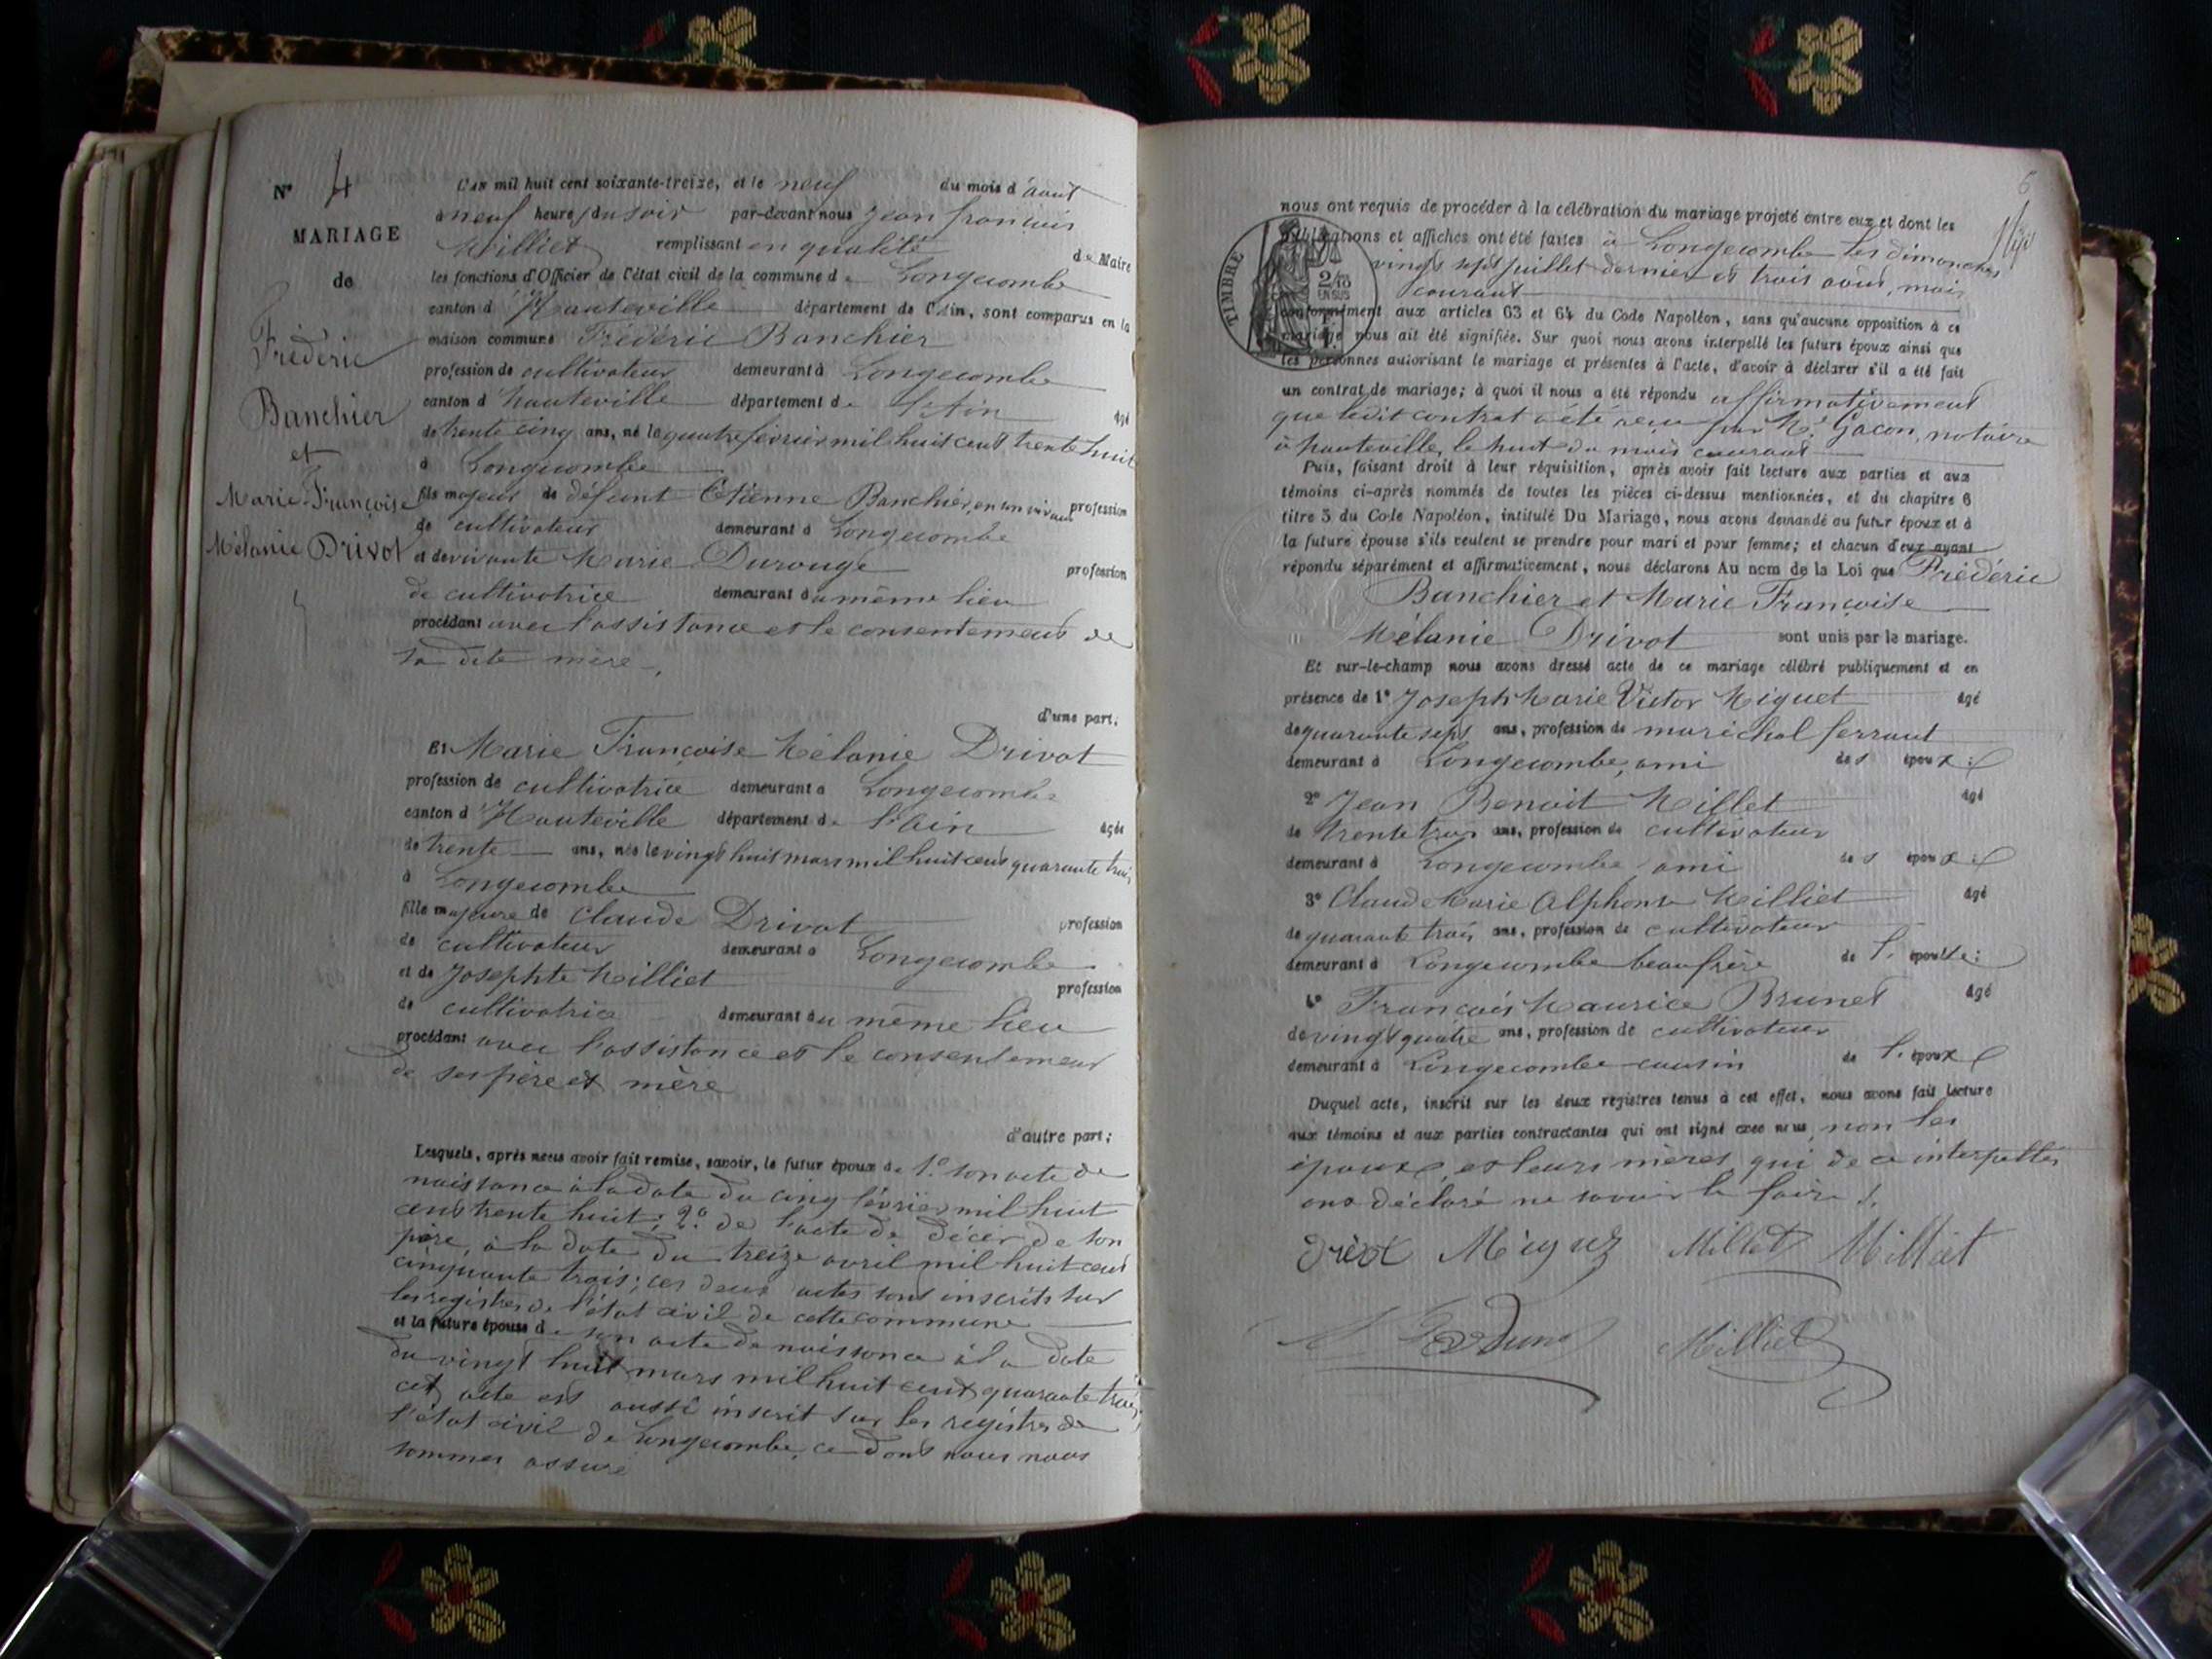 N° 4
MARIAGE
de
Frédéric
Banchier
et
Marie Françoise
Mélanie Drivot
L'an mil huit cent soixante-treize, et le neuf du mois d'août
à neuf heure du soir par-devant nous Jean françois
Milliet remplissant en qualité de Maire
les fonctions d'Officier de l'état civil de la commune de Longecombe
canton d'Hauteville département de l'Ain, sont comparus en la
maison commune Frédéric Banchier
profession de cultivateur demeurant à Longecombe
canton d'hauteville département de l'Ain âgé
de trente cinq ans, né le quatre février mil huit cent trente huit
à Longecombe
fils majeur de défunt Etienne Banchier, en son vivant profession
de cultivateur demeurant à Longecombe
et de vivante Marie Durouge profession
de cultivatrice demeurant au même lieu
procédant avec l'assistance et le consentement de
sa dite mère
d'une part;
Et Marie Françoise Mélanie Drivot
profession de cultivatrice demeurant à Longecombe
canton d'Hauteville département de l'Ain âgée
de trente ans, née le vingt huit mars mil huit cent quarante trois
à Longecombe
fille majeure de Claude Drivot profession
de cultivateur demeurant à Longecombe
et de Josephte Milliet profession
de cultivatrice demeurant au même lieu
procédant avec l'assistance et le consentement
de ses père et mère
d'autre part;
Lesquels, après nous avoir fait remise, savoir, le futur époux de 1° son acte de
naissance à la date du cinq février mil huit
cent trente huit; 2° de l'acte de décès de son
père, à la date du treize avril mil huit cent
cinquante trois; ces deux actes sont inscrits sur
les registres de l'état civil de cette commune
et la future épouse de son acte de naissance à la date
du vingt huit mars mil huit cent quarante trois,
cet acte est aussi inscrit sur les registres de
l'état civil de Longecombe, ce dont nous nous
sommes assuré
6
nous ont requis de procéder à la célébration du mariage projeté entre eux et dont les
publications et affiches ont été faites à Longecombe les dimanches
vingt sept juillet dernier et trois août, mois
courant
TIMBRE
2/10
EN SUS
conformément aux articles 63 et 64 du Code Napoléon, sans qu'aucune opposition à ce
mariage nous ait été signifiée. Sur quoi nous avons interpellé les futurs époux ainsi que
les personnes autorisant le mariage et présentes à l'acte, d'avoir à déclarer s'il a été fait
un contrat de mariage; à quoi il nous a été répondu affirmativement
que ledit contrat a été reçu par Me Gacon, notaire
à hauteville, le huit du mois courant
Puis, faisant droit à leur réquisition, après avoir fait lecture aux parties et aux
témoins ci-après nommés de toutes les pièces ci-dessus mentionnées, et du chapitre 6
titre 5 du Code Napoléon, intitulé Du Mariage, nous avons demandé au futur époux et à
la future épouse s'ils veulent se prendre pour mari et pour femme; et chacun d'eux ayant
répondu séparément et affirmativement, nous déclarons Au nom de la Loi que Frédéric
Banchier et Marie Françoise
Mélanie Drivot sont unis par le mariage.
Et sur-le-champ nous avons dressé acte de ce mariage célébré publiquement et en
présence de 1° Joseph Marie Victor Miguet âgé
de quarante sept ans, profession de maréchal ferrant
demeurant à Longecombe, ami des époux;
2° Jean Benoit Millet âgé
de trente trois ans, profession de cultivateur
demeurant à Longecombe, ami des époux;
3° Claude Marie Alphonse Milliet âgé
de quarante trois ans, profession de cultivateur
demeurant à Longecombe beau frère de l'épouse;
4° François Maurice Brunet âgé
de vingt quatre ans, profession de cultivateur
demeurant à Longecombe cousin de l'époux
Duquel acte, inscrit sur les deux registres tenus à cet effet, nous avons fait lecture
aux témoins et aux parties contractantes qui ont signé avec nous, non les
époux et leurs mères qui de ce interpellés
ont déclaré ne savoir le faire.
Miguet Millet Milliet
Milliet